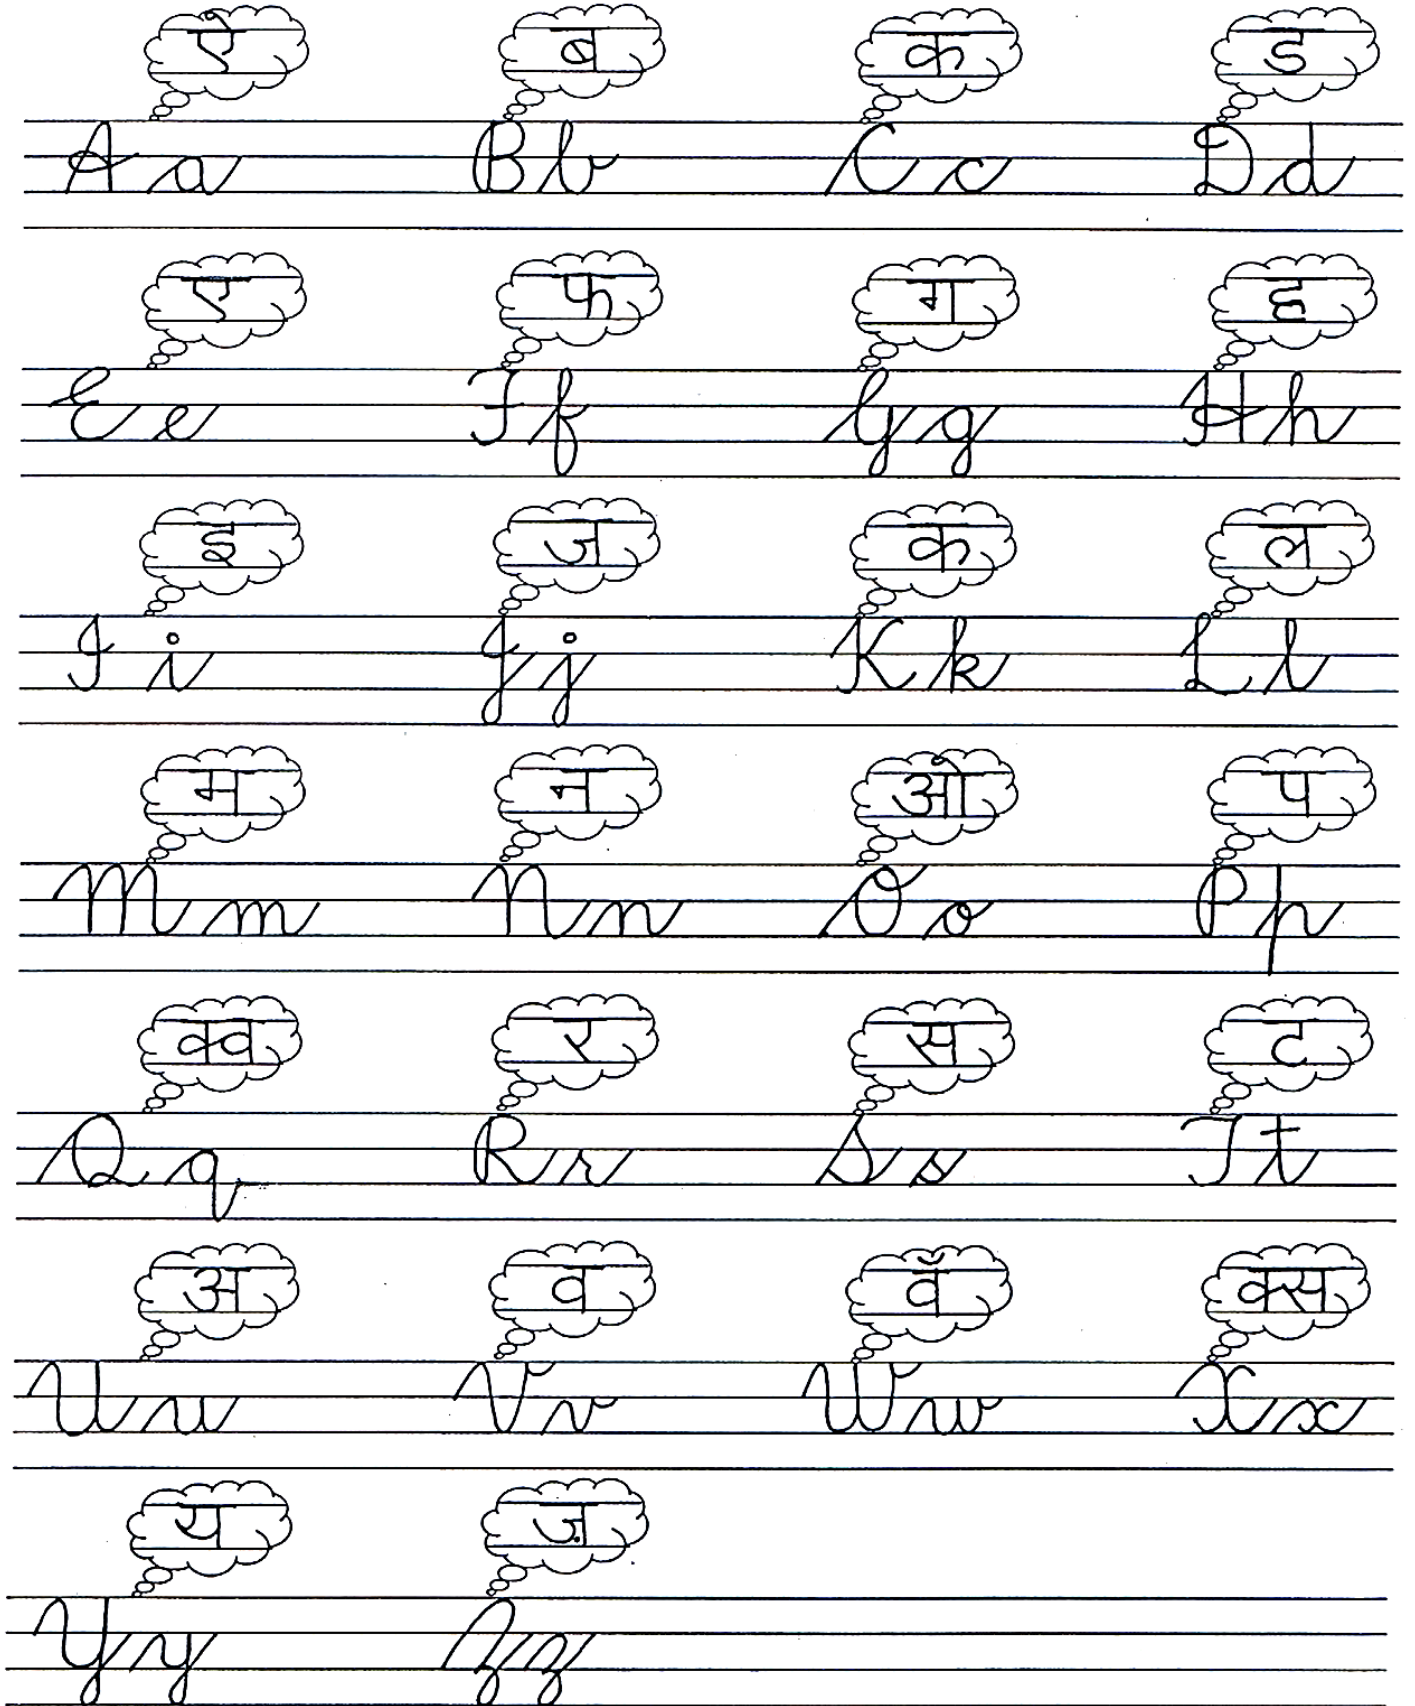 ऐ ब क ड
A a B b C c D d
ए फ ग ह
E e F f G g H h
इ ज क ल
I i J j K k L l
म न ऑ प
M m N n O o P p
क्व र स ट
Q q R r S s T t
अ व वॅ क्स
U u V v W w X x
य ज़
Y y Z z